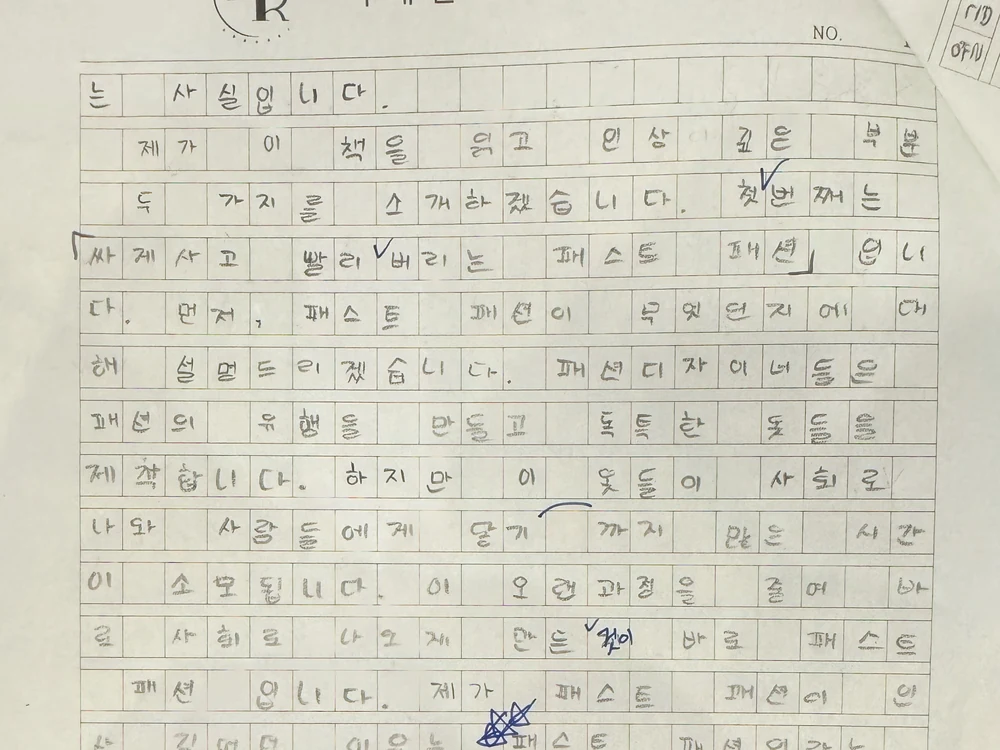 NO.
는 사실입니다.
제가 이 책을 읽고 인상 깊은 부분
두 가지를 소개하겠습니다. 첫번째는
「싸제사고 빨리버리는 패스트 패션」입니
다. 먼저, 패스트 패션이 무엇인지에 대
해 설명드리겠습니다. 패션디자이너들은
패션의 유행을 만들고 독특한 옷들을
제작합니다. 하지만 이 옷들이 사회로
나와 사람들에게 닿기 까지 많은 시간
이 소모됩니다. 이 오랜과정을 줄여 바
로 사회로 나오게 만든것이 바로 패스트
패션 입니다. 제가 패스트 패션이 인
패스트